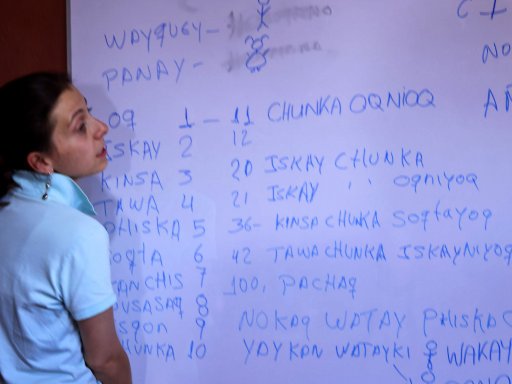 WAYQUEY-
PANAY-
OQ 1 - 11 CHUNKA OQNIOQ
ISKAY 2 12
KINSA 3 20 ISKAY CHUNKA
TAWA 4 21 ISKAY '' OQNIYOQ
PHISKA 5 36- KINSA CHUNKA SOQTAYOQ
SOQTA 6 42 TAWA CHUNKA ISKAYNIYOQ
QANCHIS 7 100, PACHAQ
PUSASAQ 8
ISQON 9 NOKAQ WATAY PHISKA
CHUNKA 10 YAYKAN WATAYKI WAKAY
NO